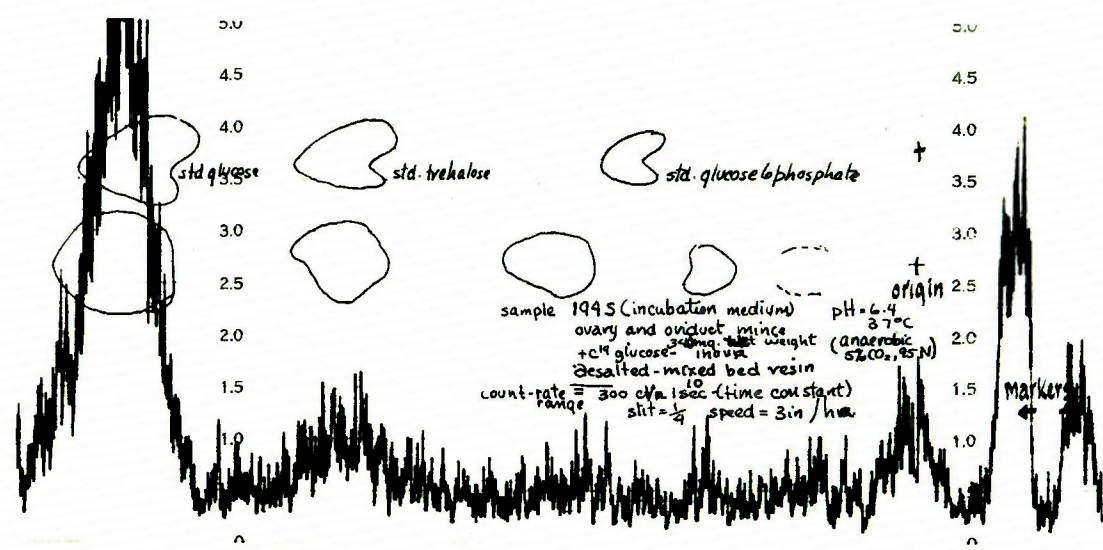 5.0
4.5
4.0
3.5
3.0
2.5
2.0
1.5
1.0
0
std glucose
std. trehalose
std. glucose 6 phosphate
+
+
origin
sample 194S (incubation medium)
ovary and oviduct mince
wet weight
+C14 glucose-
desalted-mixed bed resin
count-rate = 300 1 sec (time constant)
range
10
slit = 1/4 speed = 3in / hr
pH = 6.4
37°C
(anaerobic
5% CO2, 95 N)
5.0
4.5
4.0
3.5
3.0
2.5
2.0
1.5
1.0
0
markers